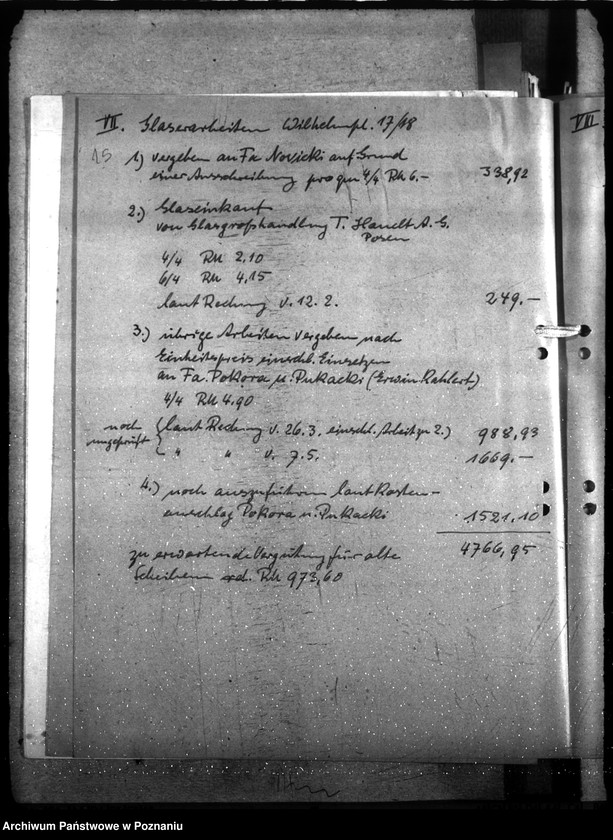 VII. Glaserarbeiten Wilhelmpl. 17/18
VIII
15
1) vergeben an Fa Novicki auf Grund
einer Ausschreibung pro qm 4/4 RM 6.- 338,92
2.) Glaseinkauf
von Glasgroßhandlung T. Handt A. G.
Posen
4/4 RM 2,10
6/4 RM 4,15
laut Rechnung v. 12. 2. 249.-
3.) übrige Arbeiten vergeben nach
Einheitspreis einschl. Einsetzen
an Fa. Pokora u. Pukacki (Erwin Rahlert)
4/4 RM 4.90
noch ungeprüft
laut Rechnung v. 26.3. einschl. Arbeit zu 2.) 988,93
" " v. 7.5. 1669.-
4.) noch auszuführen laut Kosten-
anschlag Pokora u. Pukacki 1521,10
4766,95
zu erwartende Vergütung für alte
Scheiben RM 973,60
Archiwum Państwowe w Poznaniu